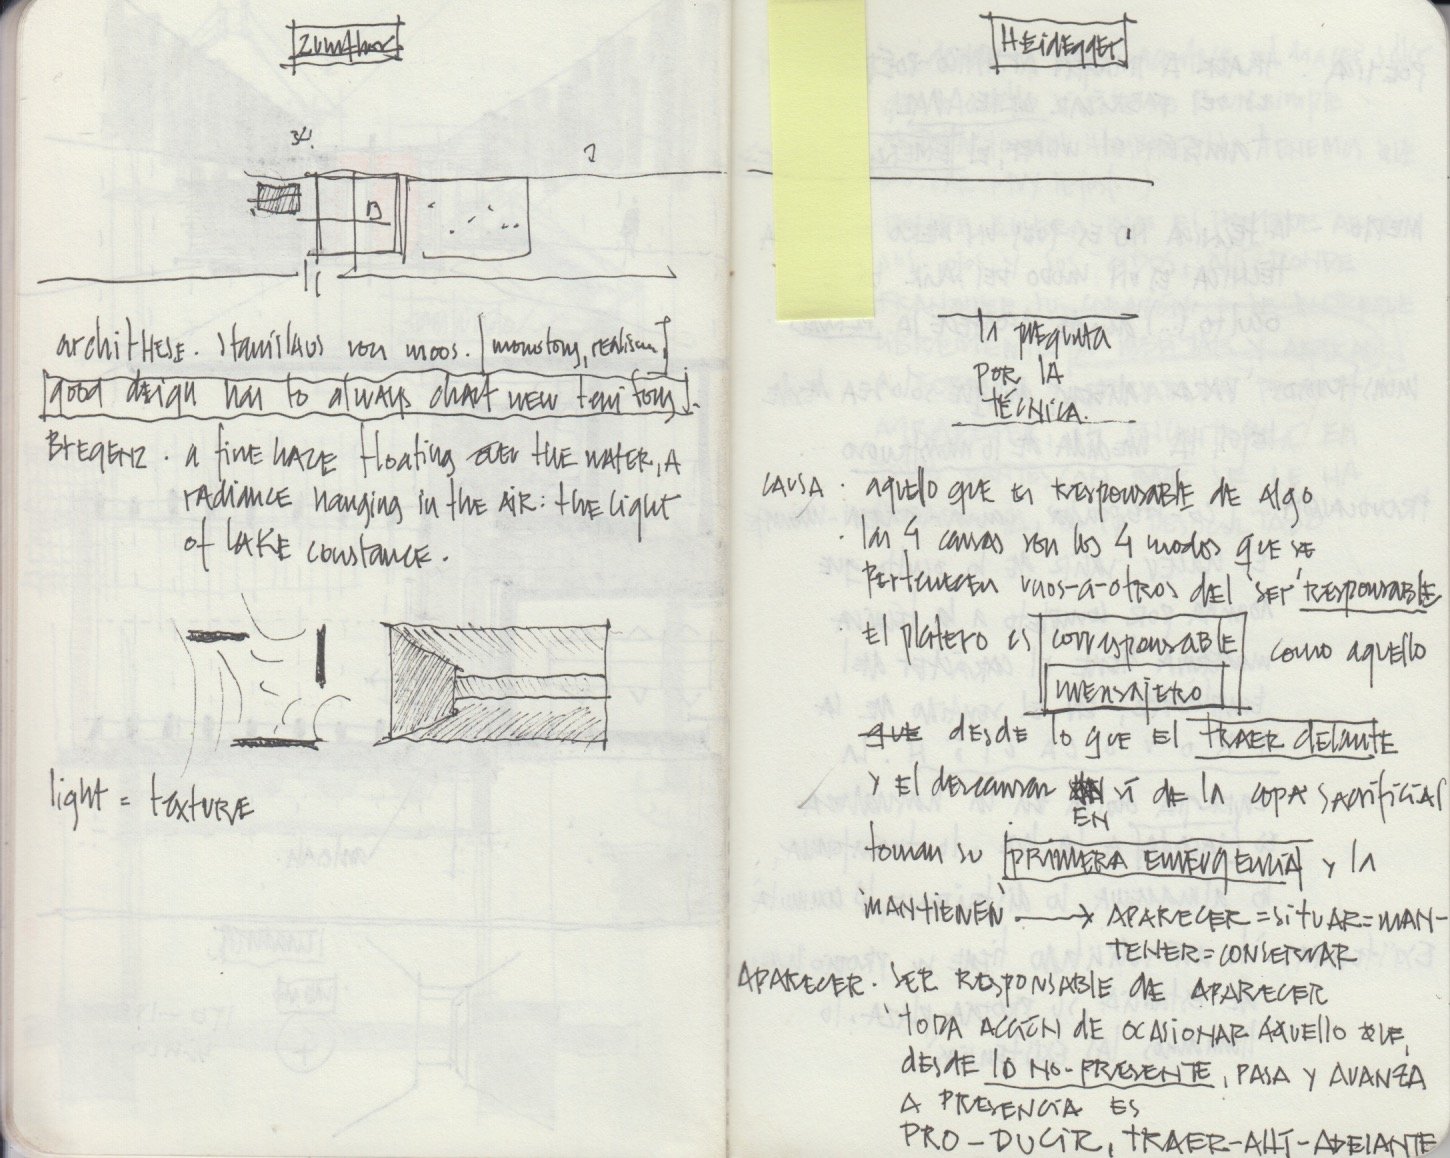 Zumthor
archithese. stanislaus von moos. [monotony, realism]
good design has to always chart new territory.
Bregenz. a fine haze floating over the water, a
radiance hanging in the air: the light
of lake constance.
light = texture
Heidegger
la pregunta
por la
técnica.
causa. aquello que es responsable de algo
. las 4 causas son los 4 modos que se
pertenecen unos-a-otros del 'ser' responsable
. El platero es corresponsable como aquello
mensajero
que desde lo que el traer delante
y el descansar en sí de la copa sacrificial
EN
toman su primera emergencia y la
'mantienen' → aparecer = situar = man-
tener = conservar
aparecer. ser responsable de aparecer
toda acción de ocasionar aquello que,
desde lo no-presente, pasa y avanza
a presencia es
pro-ducir, traer-ahí-adelante